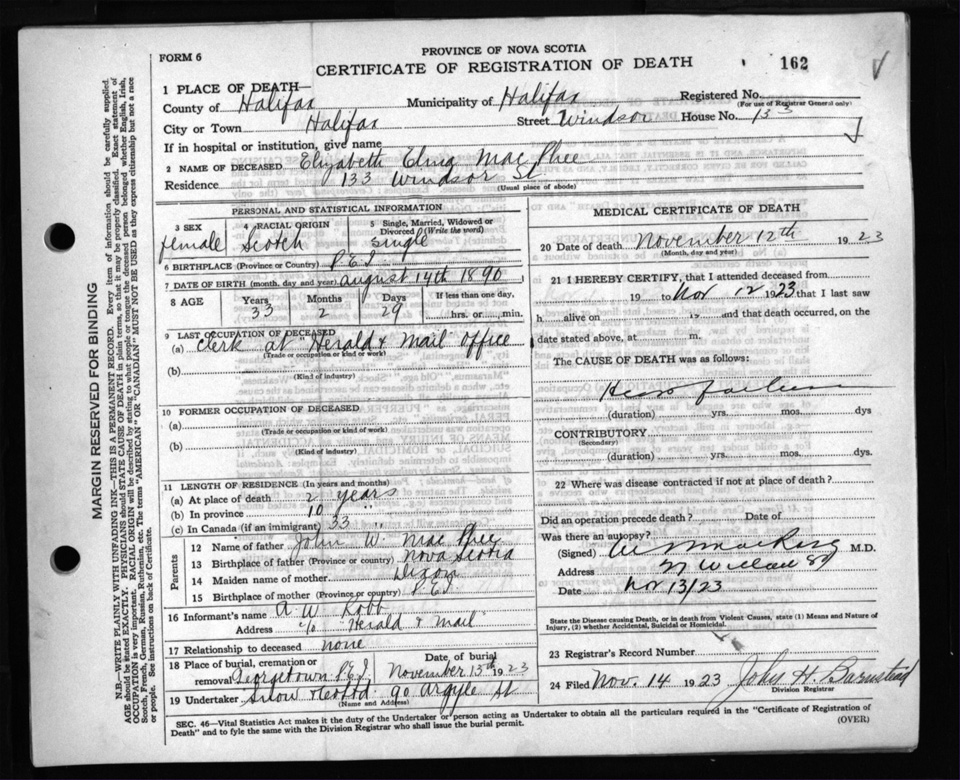 PROVINCE OF NOVA SCOTIA
FORM 6
CERTIFICATE OF REGISTRATION OF DEATH 162
1 PLACE OF DEATH—
County of Halifax Municipality of Halifax Registered No.
(For use of Registrar General only)
City or Town Halifax Street Windsor House No. 133
If in hospital or institution, give name
2 NAME OF DECEASED Elizabeth Edna Mac Phee
Residence 133 Windsor St
(Usual place of abode)
PERSONAL AND STATISTICAL INFORMATION
3 SEX female
4 RACIAL ORIGIN Scotch
5 Single, Married, Widowed or Divorced (Write the word) single
6 BIRTHPLACE (Province or Country) P.E.I
7 DATE OF BIRTH (month, day and year) august 14th 1890
8 AGE Years 33 Months 2 Days 29 If less than one day, hrs. or min.
9 LAST OCCUPATION OF DECEASED
(a) clerk at "Herald & Mail" office
(Trade or occupation or kind or work)
(b)
(Kind of industry)
10 FORMER OCCUPATION OF DECEASED
(a)
(Trade or occupation or kind of work)
(b)
(Kind of industry)
11 LENGTH OF RESIDENCE (In years and months)
(a) At place of death 2 years
(b) In province 10 "
(c) In Canada (if an immigrant) 33 "
Parents
12 Name of father John W. Mac Phee
13 Birthplace of father (Province or country) Nova Scotia
14 Maiden name of mother Dixon
15 Birthplace of mother (Province or country) P.E.I
16 Informant's name A W Robb
Address c/o "Herald & Mail"
17 Relationship to deceased none
18 Place of burial, cremation or removal Georgetown P.E.I Date of burial November 15th 1923
19 Undertaker Snow & Co Ltd 90 Argyle St
(Name and Address)
MEDICAL CERTIFICATE OF DEATH
20 Date of death November 12th 1923
(Month, day and year)
21 I HEREBY CERTIFY, that I attended deceased from
19 to Nov 12 1923 that I last saw
h alive on 19 and that death occurred, on the
date stated above, at m.
The CAUSE OF DEATH was as follows:
Heart failure
(duration) yrs. mos. dys
CONTRIBUTORY
(Secondary)
(duration) yrs. mos. dys
22 Where was disease contracted if not at place of death?
Did an operation precede death? Date of
Was there an autopsy?
(Signed) M.D.
Address Willow St
Date Nov 13/23
State the Disease causing Death, or in death from Violent Causes, state (1) Means and Nature of
Injury, (2) whether Accidental, Suicidal or Homicidal.
23 Registrar's Record Number
24 Filed Nov. 14 1923 John H. Barnstead
Division Registrar
SEC. 46—Vital Statistics Act makes it the duty of the Undertaker or person acting as Undertaker to obtain all the particulars required in the "Certificate of Registration of
Death" and to fyle the same with the Division Registrar who shall issue the burial permit. (OVER)
MARGIN RESERVED FOR BINDING
N.B.—WRITE PLAINLY WITH UNFADING INK—THIS IS A PERMANENT RECORD. Every item of information should be carefully supplied.
AGE should be stated EXACTLY. PHYSICIANS should STATE CAUSE OF DEATH in plain terms, so that it may be properly classified. Exact statement of
OCCUPATION is very important. RACIAL ORIGIN will be described by stating to what people or tongue the deceased person belonged whether English, Irish,
Scotch, French, German, Russian, Ruthenian, etc. The terms "AMERICAN" or "CANADIAN" MUST NOT BE USED as they express citizenship but not a race
or people. See instructions on back of Certificate.